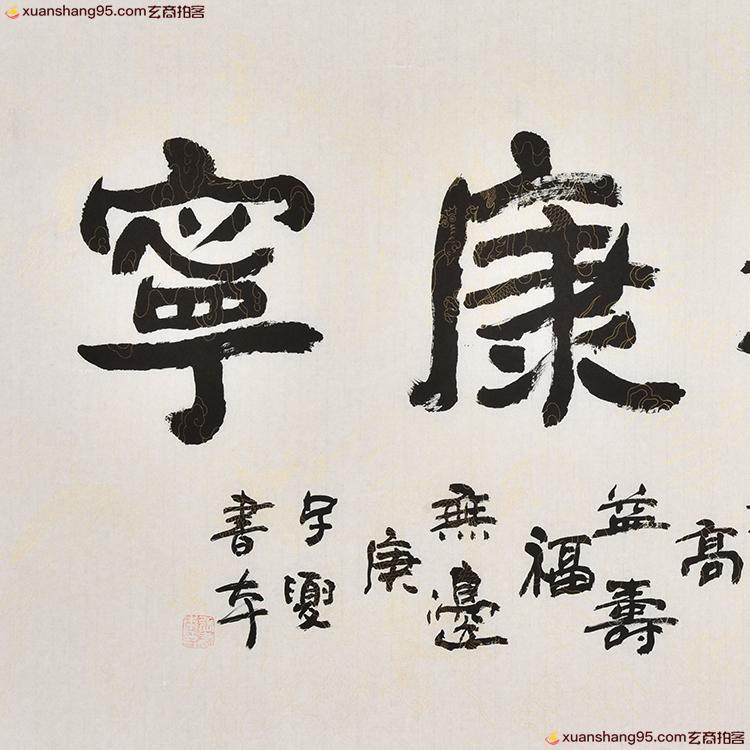 xuanshang95.com玄商拍客
康寧
高
益壽
福
無邊
庚
子夏
書年
xuanshang95.com玄商拍客